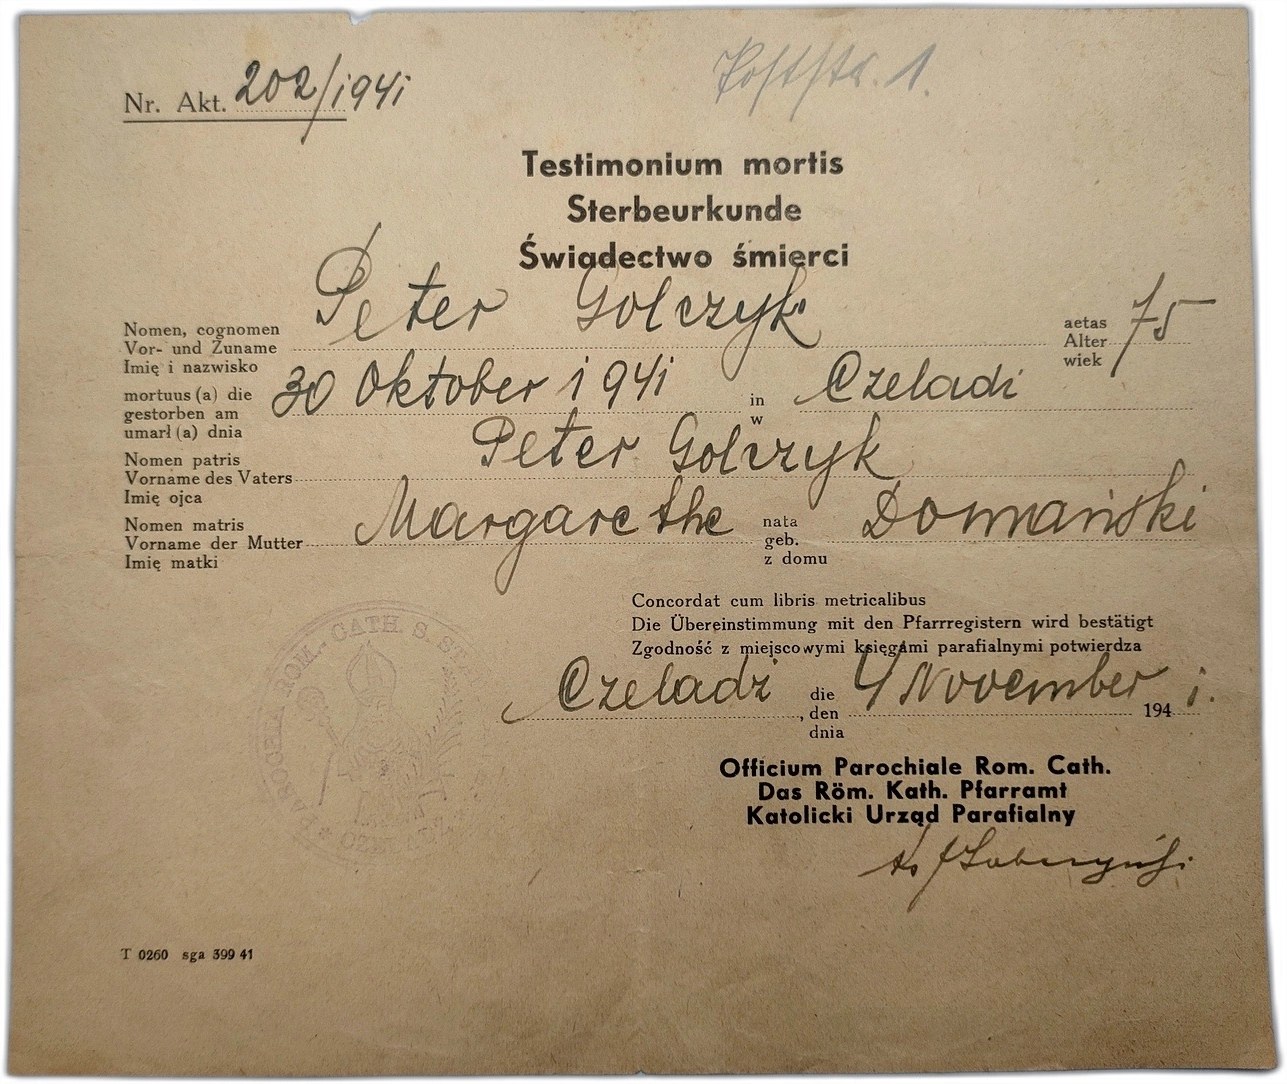 Nr. Akt. 202/1941
Poststr. 1.
Testimonium mortis
Sterbeurkunde
Świadectwo śmierci
Nomen, cognomen
Vor- und Zuname
Imię i nazwisko
Peter Golczyk
aetas
Alter
wiek
75
mortuus (a) die
gestorben am
umarł (a) dnia
30 Oktober 1941
in
w
Czeladi
Nomen patris
Vorname des Vaters
Imię ojca
Peter Golczyk
Nomen matris
Vorname der Mutter
Imię matki
Margarethe
nata
geb.
z domu
Domański
Concordat cum libris metricalibus
Die Übereinstimmung mit den Pfarrregistern wird bestätigt
Zgodność z miejscowymi księgami parafialnymi potwierdza
Czeladz
, die
den
dnia
4 November 1941.
Officium Parochiale Rom. Cath.
Das Röm. Kath. Pfarramt
Katolicki Urząd Parafialny
ROM. CATH. S. ST
T 0260 sga 399 41